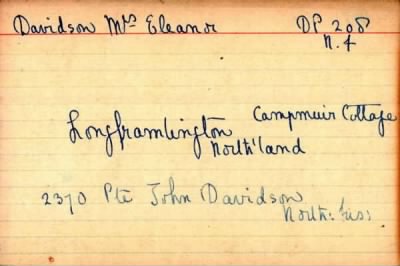 Davidson Mrs Eleanor DP 208
N.F
Campmuir Cottage
Longframlington
North'land
2370 Pte John Davidson
North: Fus: